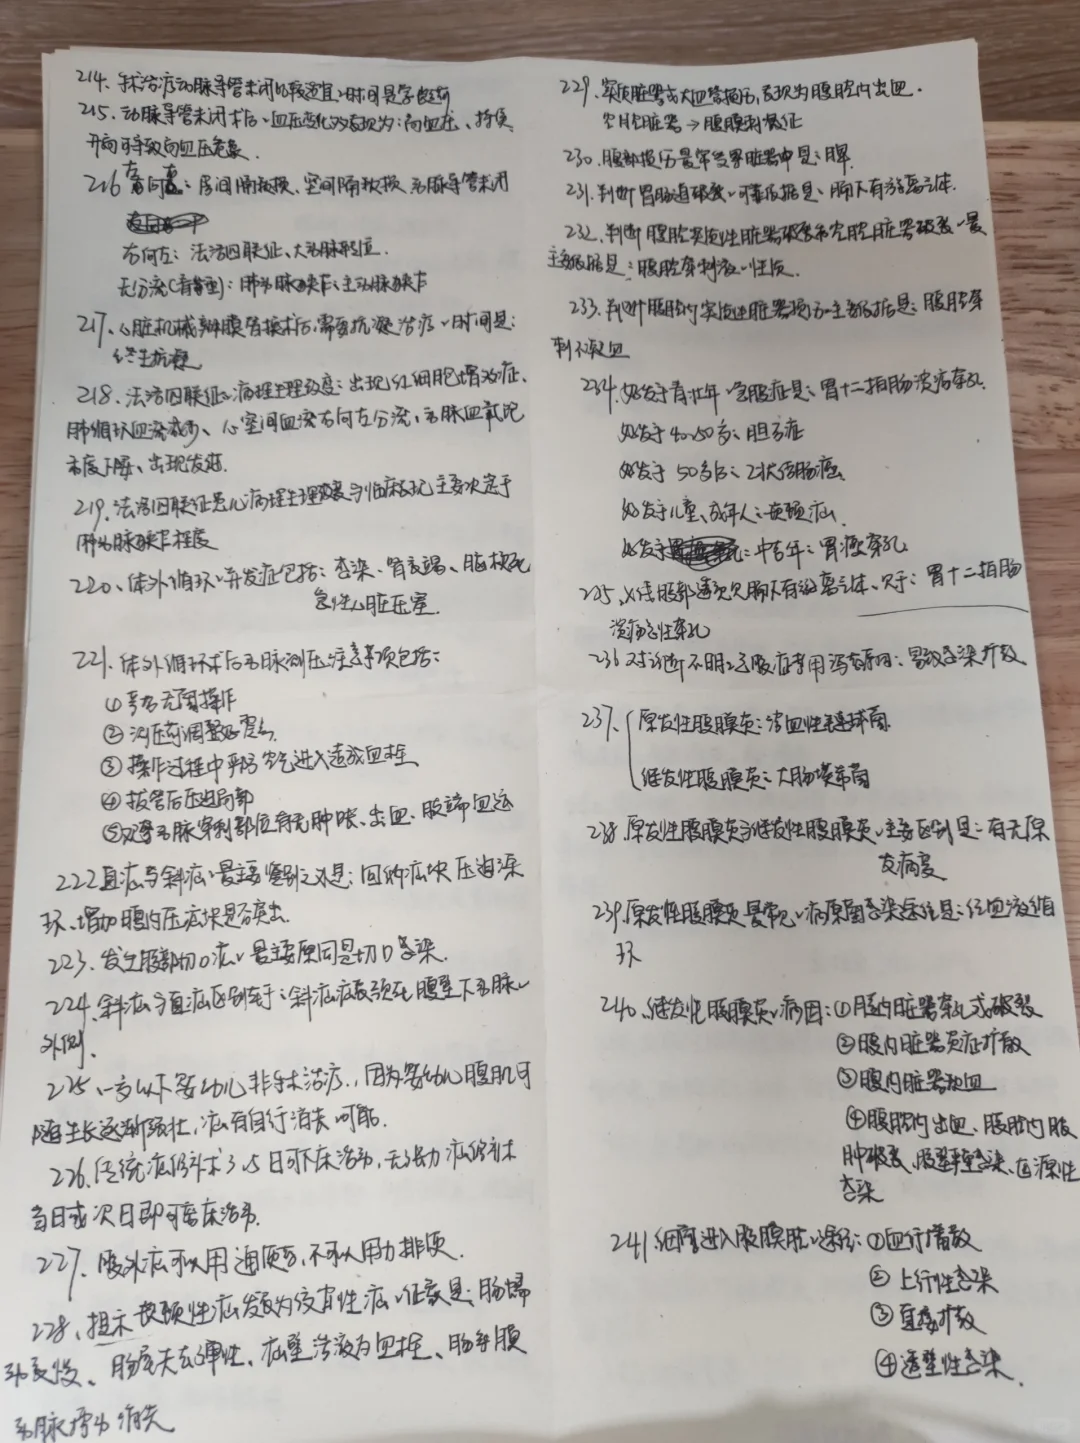 214、手术治疗动脉导管未闭比较适宜、时间是学龄前
215、动脉导管未闭术后、血压变化为表现为：高血压、持续
升高可导致高血压危象.
216 左向右：房间隔缺损、室间隔缺损、动脉导管未闭
右向左：法洛四联征、大动脉转位.
无分流(看书型)：肺动脉狭窄、主动脉狭窄
217、心脏机械瓣膜替换术后,需要抗凝治疗、时间是：
终生抗凝
218、法洛四联征、病理生理改变：出现红细胞增多症、
肺循环血流减少、心室间血流右向左分流,动脉血氧饱
和度下降、出现发绀.
219、法洛四联征患儿病理生理改变与临床表现主要决定于
肺动脉狭窄程度
220、体外循环、并发症包括：感染、肾衰竭、脑梗死
急性心脏压塞.
221、体外循环术后动脉测压注意事项包括：
①严格无菌操作
②测压前调整好零点
③操作过程中严防空气进入造成血栓
④拔管后压迫局部
⑤观察动脉穿刺部位有无肿胀、出血、肢端血运
222 直疝与斜疝、最主要鉴别之处是：回纳疝块压迫深
环、增加腹内压疝块是否突出.
223、发生腹部切口疝、最主要原因是切口感染.
224、斜疝与直疝区别在于：斜疝疝囊颈在腹壁下动脉、
外侧.
225、一岁以下婴幼儿非手术治疗，因为婴幼儿腹肌可
随生长逐渐强壮,疝有自行消失可能.
226、传统疝修补术3-5日可下床活动,无张力疝修补术
当日或次日即可离床活动.
227、腹外疝可以用通便药,不可以用力排便.
228、提示嵌顿性疝发展为绞窄性疝、征象是：肠蠕
动变慢、肠管失去弹性、疝壁渗液为血性、肠系膜
动脉搏动消失
229、实质脏器或大血管损伤,表现为腹腔内出血.
空腔脏器→腹膜刺激征
230、腹部损伤最常受累脏器中是：脾
231、判断胃肠道破裂、可靠依据是：膈下有游离气体.
232、判断腹腔实质性脏器破裂和空腔脏器破裂、最
主要依据是：腹腔穿刺液、性质.
233、判断腹腔内实质性脏器损伤、主要依据是：腹腔穿
刺不凝血
234、好发于青壮年、急腹症是：胃十二指肠溃疡穿孔
好发于40-50岁：胆石症
好发于50岁后：乙状结肠癌
好发于儿童、成年人：嵌顿疝.
好发于：中老年：胃癌穿孔
235、X线腹部透视见膈下有游离气体、见于：胃十二指肠
溃疡急性穿孔
236 对诊断不明、急腹症禁用泻药原因：易致感染扩散
237、原发性腹膜炎：溶血性链球菌
继发性腹膜炎：大肠埃希菌
238、原发性腹膜炎与继发性腹膜炎、主要区别是：有无原
发病变
239、原发性腹膜炎最常见、病原菌感染途径是：经血液循
环
240、继发性腹膜炎、病因：①腹内脏器穿孔或破裂
②腹内脏器炎症扩散
③腹内脏器缺血
④腹腔内出血、腹腔内脓
肿破裂、腹壁严重感染、医源性
感染
241、细菌进入腹膜腔、途径：①血行播散
②上行性感染
③直接扩散
④透壁性感染.